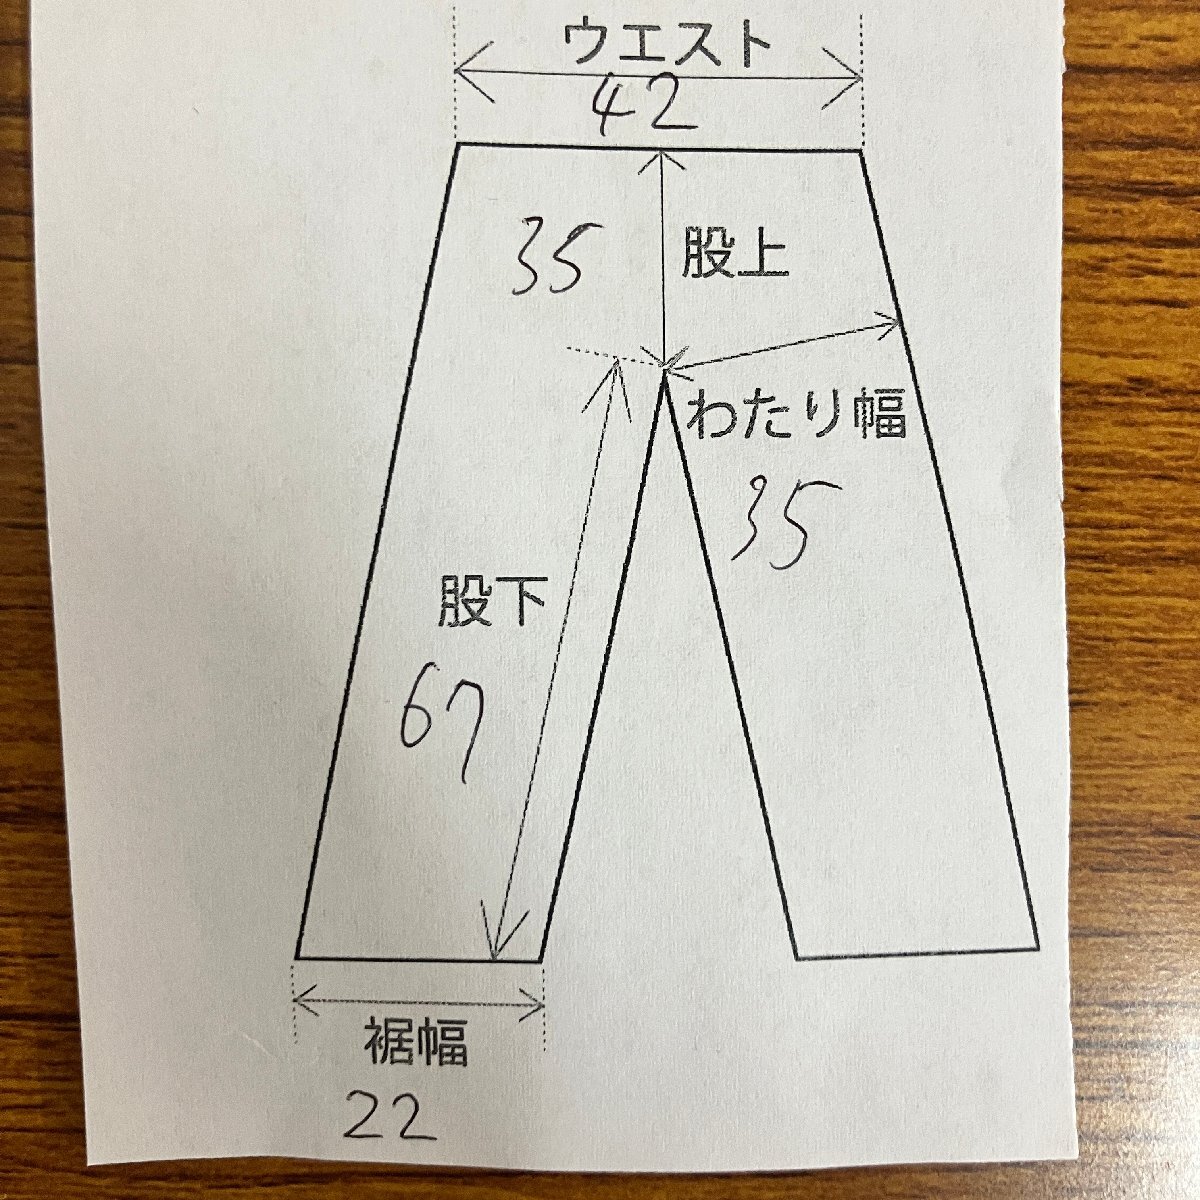 ウエスト
42
35
股上
わたり幅
35
股下
67
裾幅
22